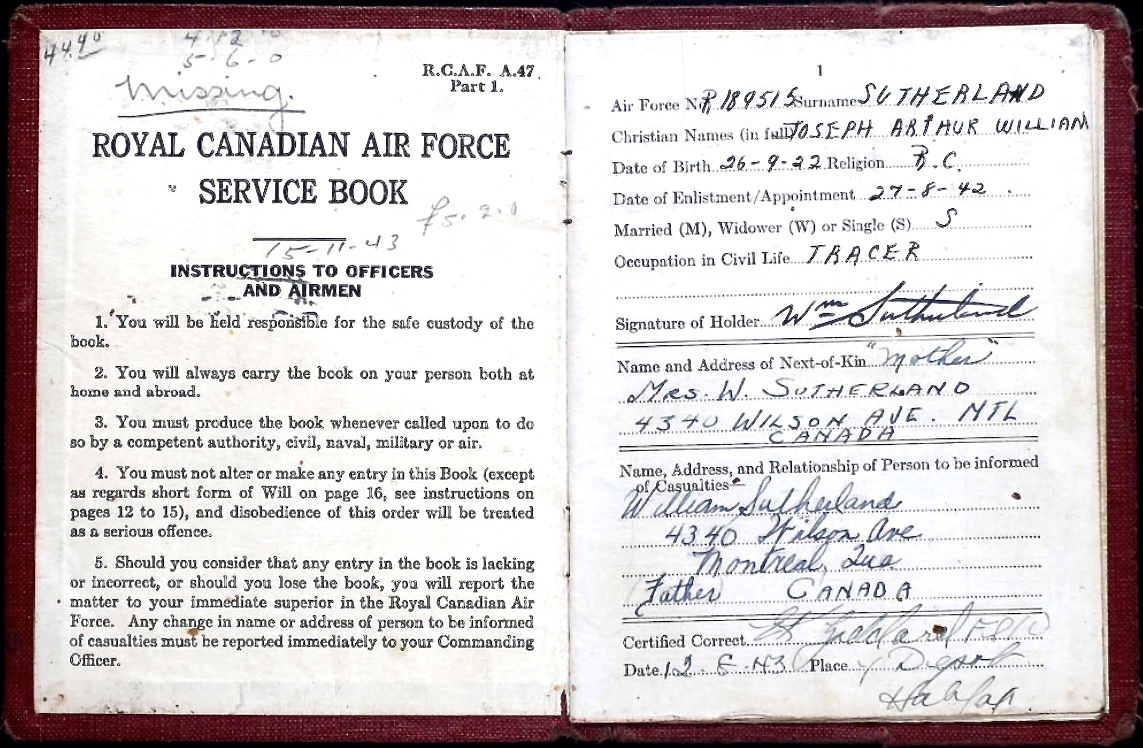 44.90
5-6-0
Missing.
R.C.A.F. A.47
Part 1.
ROYAL CANADIAN AIR FORCE
SERVICE BOOK
£5.2.0
15-11-43
INSTRUCTIONS TO OFFICERS
AND AIRMEN
1. You will be held responsible for the safe custody of the
book.
2. You will always carry the book on your person both at
home and abroad.
3. You must produce the book whenever called upon to do
so by a competent authority, civil, naval, military or air.
4. You must not alter or make any entry in this Book (except
as regards short form of Will on page 16, see instructions on
pages 12 to 15), and disobedience of this order will be treated
as a serious offence.
5. Should you consider that any entry in the book is lacking
or incorrect, or should you lose the book, you will report the
matter to your immediate superior in the Royal Canadian Air
Force. Any change in name or address of person to be informed
of casualties must be reported immediately to your Commanding
Officer.
1
Air Force No. R 189515 Surname SUTHERLAND
Christian Names (in full) JOSEPH ARTHUR WILLIAM
Date of Birth 26-9-22 Religion R.C.
Date of Enlistment/Appointment 27-8-42
Married (M), Widower (W) or Single (S) S
Occupation in Civil Life TRACER
Signature of Holder Wm Sutherland
Name and Address of Next-of-Kin "Mother"
MRS. W. SUTHERLAND
4340 WILSON AVE. MTL
CANADA
Name, Address, and Relationship of Person to be informed
of Casualties—
William Sutherland
4340 Wilson Ave
Montreal, Que
Father CANADA
Certified Correct
Date 12-8-43 Place Y Depot
Halifax